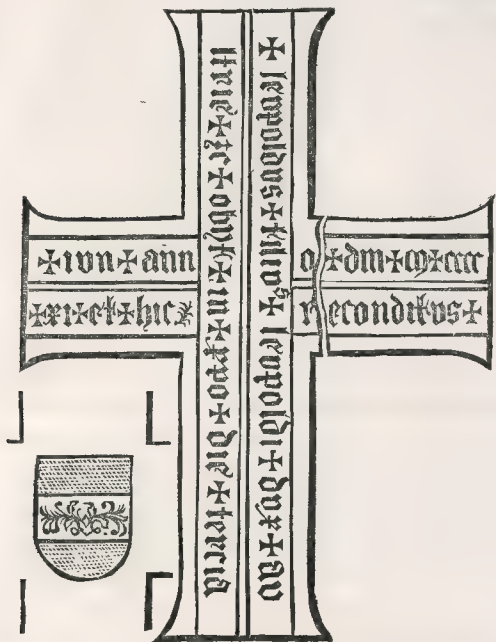 + leupoldvs + filivs + leupoldi + dux + au
strie + etc + obyt + in + xpo + die + tercia
+ ivn + anno + dm + m + cccc
+ xi + et + hic reconditvs +